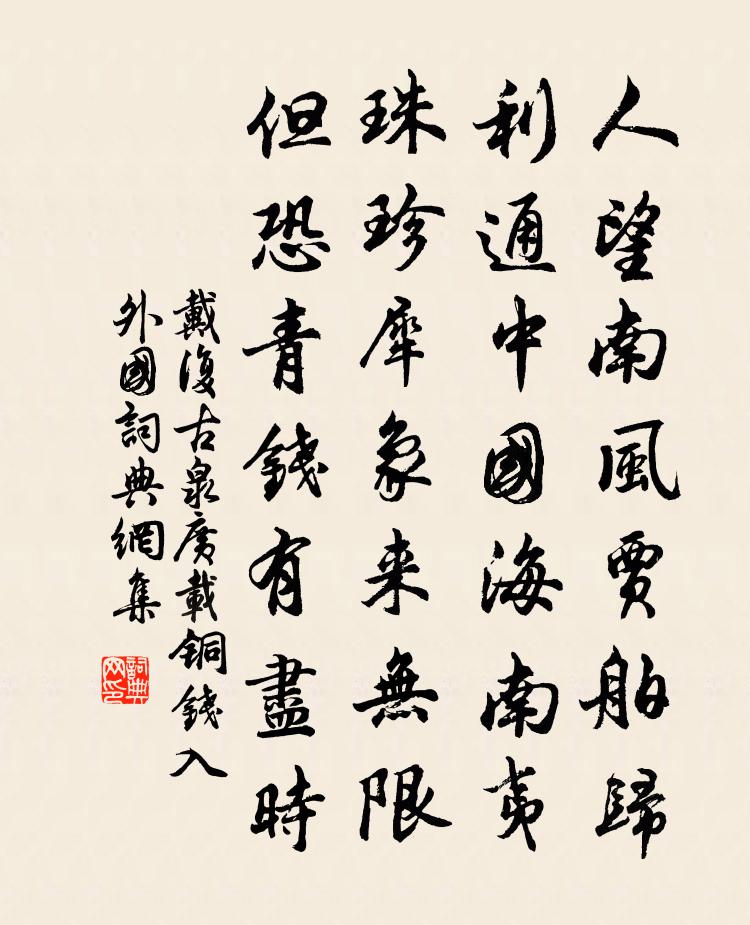 人望南風賈舶歸
利通中國海南夷
珠珍犀象来無限
但恐青錢有盡時
戴復古泉廣載銅錢入
外國詞典網集
詞典網印